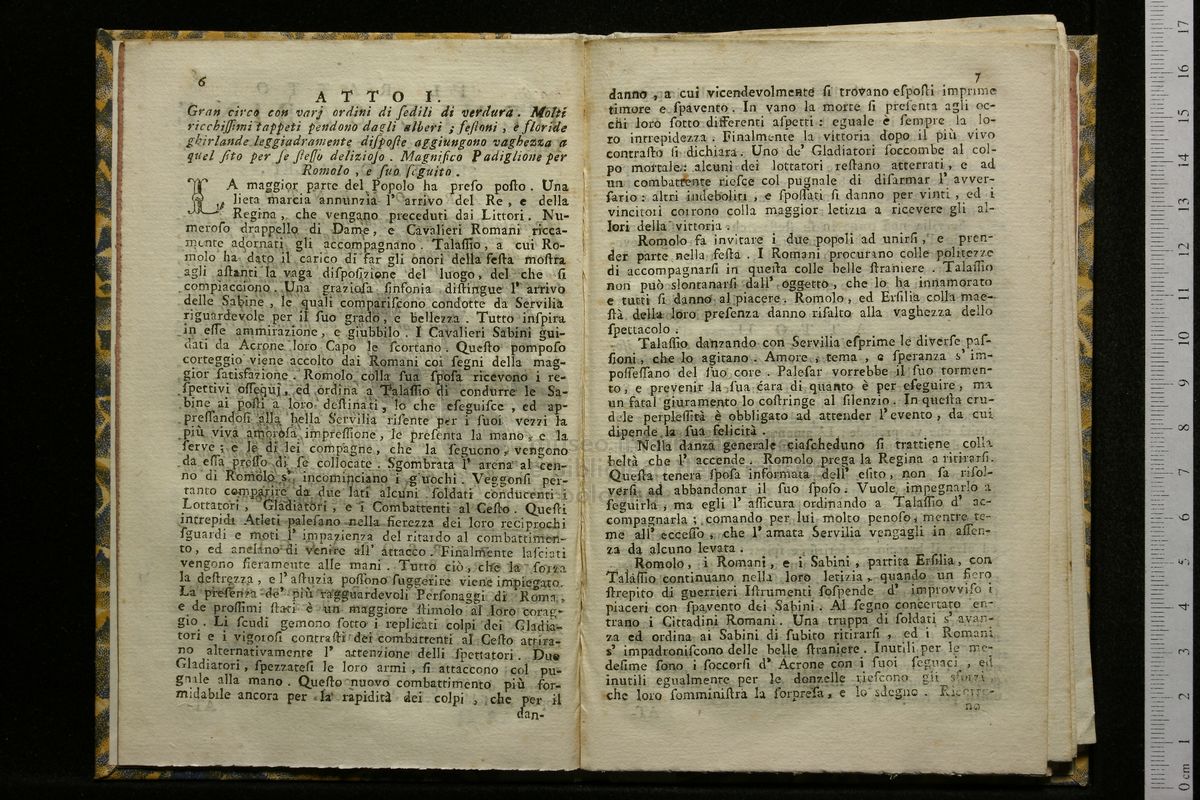 6
ATTO I.
Gran circo con varj ordini di ſedili di verdura. Molti
ricchiſſimi tappeti pendono dagli alberi; feſtoni, e floride
ghirlande leggiadramente diſpoſte aggiungono vaghezza a
quel ſito per ſe ſteſſo delizioſo. Magnifico Padiglione per
Romolo, e ſuo ſeguito.
LA maggior parte del Popolo ha preſo poſto. Una
lieta marcia annunzia l' arrivo del Re, e della
Regina, che vengano preceduti dai Littori. Nu-
meroſo drappello di Dame, e Cavalieri Romani ricca-
mente adornati gli accompagnano. Talaſſio, a cui Ro-
molo ha dato il carico di far gli onori della feſta moſtra
agli aſtanti la vaga diſpoſizione del luogo, del che ſi
compiacciono. Una grazioſa ſinfonia diſtingue l' arrivo
delle Sabine, le quali compariſcono condotte da Servilia
riguardevole per il ſuo grado, e bellezza. Tutto inſpira
in eſſe ammirazione, e giubbilo. I Cavalieri Sabini gui-
dati da Acrone loro Capo le ſcortano. Queſto pompoſo
corteggio viene accolto dai Romani coi ſegni della mag-
gior ſatisfazione. Romolo colla ſua ſpoſa ricevono i re-
ſpettivi oſſequj, ed ordina a Talaſſio di condurre le Sa-
bine ai poſti a loro deſtinati, lo che eſeguiſce, ed ap-
preſſandoſi alla bella Servilia riſente per i ſuoi vezzi la
più viva amoroſa impreſſione, le preſenta la mano, e la
ſerve; e le di lei compagne, che la ſeguono, vengono
da eſſa preſſo di ſe collocate. Sgombrata l' arena al cen-
no di Romolo s' incominciano i giuochi. Veggonſi per-
tanto comparire da due lati alcuni ſoldati conducenti i
Lottatori, Gladiatori, e i Combattenti al Ceſto. Queſti
intrepidi Atleti paleſano nella fierezza dei loro reciprochi
ſguardi e moti l' impazienza del ritardo al combattimen-
to, ed anelano di venire all' attacco. Finalmente laſciati
vengono fieramente alle mani. Tutto ciò, che la forza
la deſtrezza, e l' aſtuzia poſſono ſuggerire viene impiegato.
La preſenza de' più ragguardevoli Perſonaggi di Roma,
e de proſſimi ſtati è un maggiore ſtimolo al loro corag-
gio. Li ſcudi gemono ſotto i replicati colpi dei Gladia-
tori e i vigoroſi contraſti dei combattenti al Ceſto attira-
no alternativamente l' attenzione delli ſpettatori. Due
Gladiatori, ſpezzateſi le loro armi, ſi attaccono col pu-
gnale alla mano. Queſto nuovo combattimento più for-
midabile ancora per la rapidità dei colpi, che per il
dan-
7
danno, a cui vicendevolmente ſi trovano eſpoſti imprime
timore e ſpavento. In vano la morte ſi preſenta agli oc-
chi loro ſotto differenti aſpetti: eguale è ſempre la lo-
ro intrepidezza. Finalmente la vittoria dopo il più vivo
contraſto ſi dichiara. Uno de' Gladiatori ſoccombe al col-
po mortale: alcuni dei lottatori reſtano atterrati, e ad
un combattente rieſce col pugnale di diſarmar l' avver-
ſario: altri indeboliti, e ſpoſſati ſi danno per vinti, ed i
vincitori corrono colla maggior letizia a ricevere gli al-
lori della vittoria.
Romolo fa invitare i due popoli ad unirſi, e pren-
der parte nella feſta. I Romani procurano colle politezze
di accompagnarſi in queſta colle belle ſtraniere. Talaſſio
non può slontanarſi dall' oggetto, che lo ha innamorato
e tutti ſi danno al piacere. Romolo, ed Erſilia colla mae-
ſtà della loro preſenza danno riſalto alla vaghezza dello
ſpettacolo.
Talaſſio danzando con Servilia eſprime le diverſe paſ-
ſioni, che lo agitano. Amore, tema, e ſperanza s' im-
poſſeſſano del ſuo core. Paleſar vorrebbe il ſuo tormen-
to, e prevenir la ſua cara di quanto è per eſeguire, ma
un fatal giuramento lo coſtringe al ſilenzio. In queſta cru-
dele perpleſſità è obbligato ad attender l' evento, da cui
dipende la ſua felicità.
Nella danza generale ciaſcheduno ſi trattiene colla
beltà che l' accende. Romolo prega la Regina a ritirarſi.
Queſta tenera ſpoſa informata dell' eſito, non ſa riſol-
verſi ad abbandonar il ſuo ſpoſo. Vuole impegnarlo a
ſeguirla, ma egli l' aſſicura ordinando a Talaſſio d' ac-
compagnarla; comando per lui molto penoſo, mentre te-
me all' ecceſſo, che l' amata Servilia vengagli in aſſen-
za da alcuno levata.
Romolo, i Romani, e i Sabini, partita Erſilia, con
Talaſſio continuano nella loro letizia, quando un fiero
ſtrepito di guerrieri Iſtrumenti ſoſpende d' improvviſo i
piaceri con ſpavento dei Sabini. Al ſegno concertato en-
trano i Cittadini Romani. Una truppa di ſoldati s' avan-
za ed ordina ai Sabini di ſubito ritirarſi, ed i Romani
s' impadroniſcono delle belle ſtraniere. Inutili per le me-
deſime ſono i ſoccorſi d' Acrone con i ſuoi ſeguaci, ed
inutili egualmente per le donzelle rieſcono gli sforzi,
che loro ſomminiſtra la ſorpreſa, e lo sdegno. Ricorro-
no